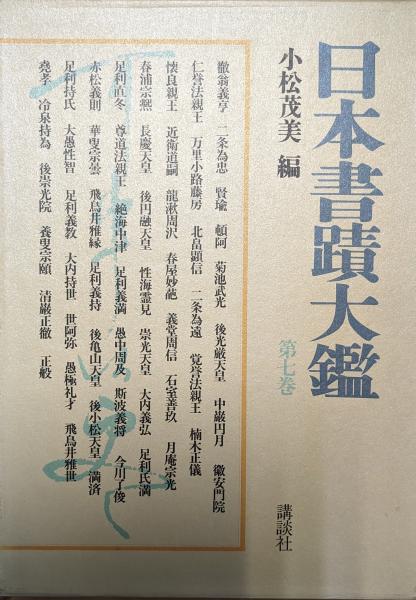 日本書蹟大鑑
第七巻
小松茂美 編
講談社
徹翁義亨 二条為忠 賢瑜 頓阿 菊池武光 後光厳天皇 中巌円月 徽安門院
仁誉法親王 万里小路藤房 北畠顕信 二条為遠 覚誉法親王 楠木正儀
懐良親王 近衛道嗣 龍湫周沢 春屋妙葩 義堂周信 石室善玖 月庵宗光
春浦宗熙 長慶天皇 後円融天皇 性海霊見 崇光天皇 大内義弘 足利氏満
足利直冬 尊道法親王 絶海中津 足利義満 愚中周及 斯波義将 今川了俊
赤松義則 華叟宗曇 飛鳥井雅縁 足利義持 後亀山天皇 後小松天皇 満済
足利持氏 大愚性智 足利義教 大内持世 世阿弥 愚極礼才 飛鳥井雅世
堯孝 冷泉持為 後崇光院 養叟宗頤 清巌正徹 正般